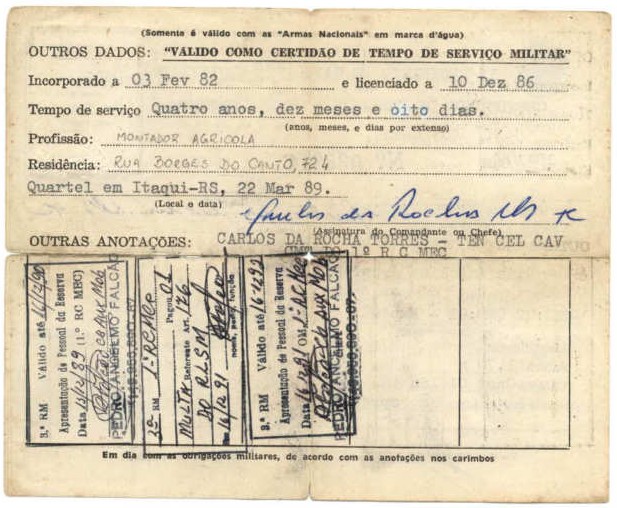 (Somente é válido com as "Armas Nacionais" em marca d'água)
OUTROS DADOS: "VALIDO COMO CERTIDÃO DE TEMPO DE SERVIÇO MILITAR"
Incorporado a 03 Fev 82 e licenciado a 10 Dez 86
Tempo de serviço Quatro anos, dez meses e oito dias.
(anos, meses, e dias por extenso)
Profissão: MONTADOR AGRICOLA
Residência: RUA BORGES DO CANTO, 724
Quartel em Itaqui-RS, 22 Mar 89.
(Local e data)
(Assinatura do Comandante ou Chefe)
OUTRAS ANOTAÇÕES: CARLOS DA ROCHA TORRES - TEN CEL CAV
CMT DO 1º R C MEC
3.ª RM Válido até 16/12/90
Apresentação de Pessoal da Reserva
Data 16/12/89 (1.º RC MEC)
PEDRO ANCELMO FALCÃO
3ª RM 1º RCMEC
MULTA Referente Art. 176 Pagou 01
DO RLSM
16/12/91
nome, posto, função
3.ª RM Válido até 16-12-92
Apresentação de Pessoal da Reserva
Data 16/12/91 OM 1º RC MEC
PEDRO ANCELMO FALCÃO
Em dia com as obrigações militares, de acordo com as anotações nos carimbos